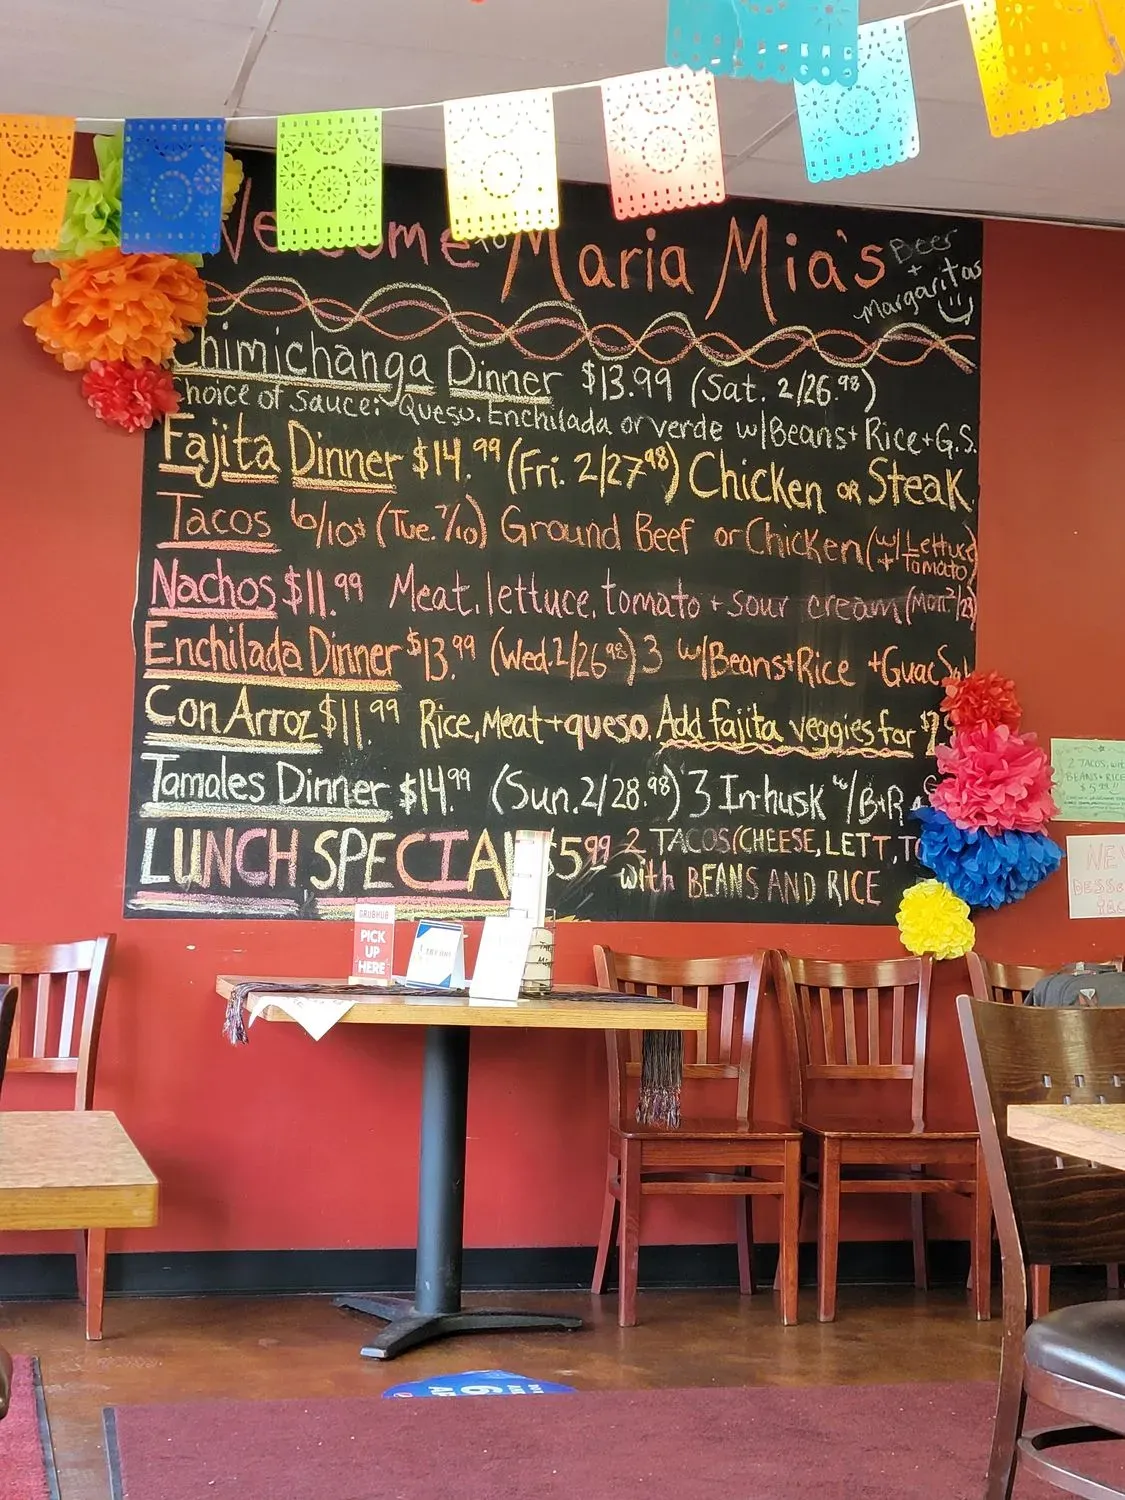 Welcome to Maria Mia's
Beer
+
Margaritas
Chimichanga Dinner $13.99 (Sat. 2/26.98)
Choice of Sauce: Queso, Enchilada or verde w/Beans+Rice+G.S.
Fajita Dinner $14.99 (Fri. 2/27.98) Chicken OR Steak
Tacos 6/10$ (Tue. 7/10) Ground Beef or Chicken (w/ Lettuce + Tomato)
Nachos $11.99 Meat, lettuce, tomato + sour cream (Mon 2/23)
Enchilada Dinner $13.99 (Wed. 2/26.98) 3 w/Beans+Rice +Guac Sal
Con Arroz $11.99 Rice, Meat+queso. Add fajita veggies for $2
Tamales Dinner $14.99 (Sun. 2/28.98) 3 In-husk w/ B+R
LUNCH SPECIAL $5.99 2 TACOS (CHEESE, LETT, TO
with BEANS AND RICE
2 TACOS, WITH
BEANS + RICE
$5.99
NEW
DESS
GRUBHUB
PICK
UP
HERE
6